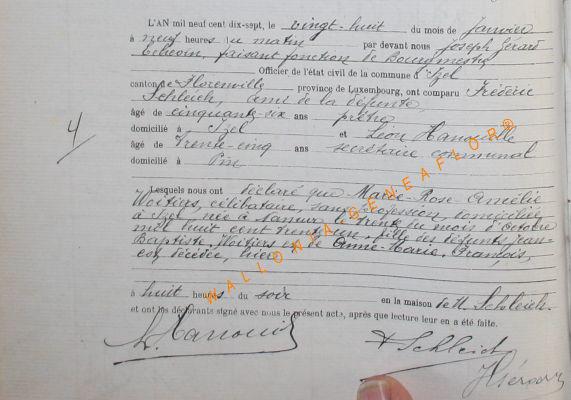 L'AN mil neuf cent dix-sept, le vingt-huit du mois de Janvier
à neuf heures du matin par devant nous Joseph Gérard
Echevin, faisant fonction de Bourgmestre
Officier de l'état civil de la commune d'Izel
canton de Florenville province de Luxembourg, ont comparu Frédéric
Schleich, ami de la défunte
âgé de cinquante-six ans prêtre
domicilié à Izel et Léon Hanouille
4
âgé de trente-cinq ans secrétaire communal
domicilié à Pin
Lesquels nous ont déclaré que Marie-Rose Amélie
Woitiers, célibataire, sans profession, domiciliée
à Izel, née à Namur le trente du mois d'Octobre
mil huit cent trente une, fille des défunts Jean-
Baptiste Woitiers et de Anne-Marie François,
est décédée, hier
à huit heures du soir en la maison de M. Schleich.
et ont les déclarants signé avec nous le présent acte, après que lecture leur en a été faite.
Schleich
JGérard
WALLONIA GENEAFLOR®